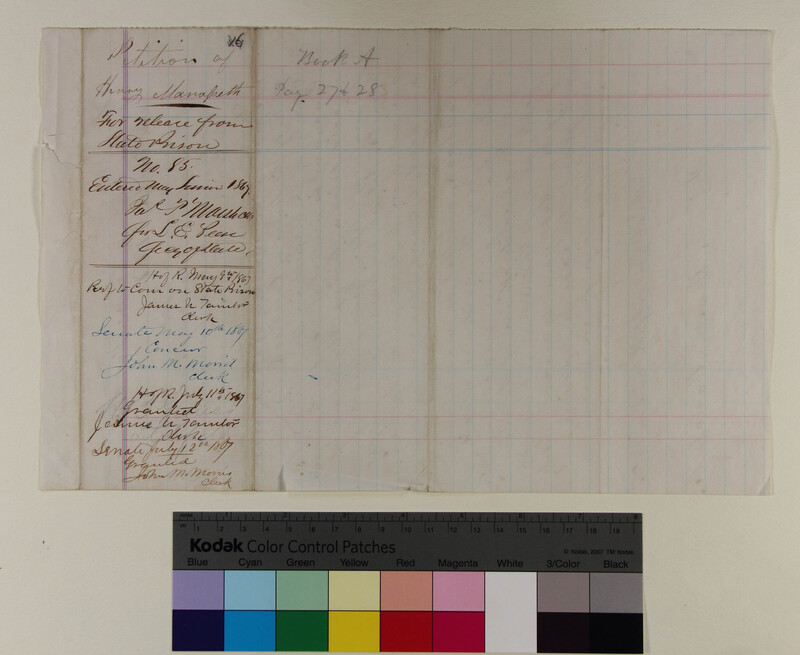 46
Petition of
Henry Manapeth
For release from
State Prison
No. 85.
Entered May Session 1867
for L. E. Pease
Secy of State.
H of R. May 9th 1867
Ref to Com on State Prison
James U Taintor
Clerk
Senate May 10th 1867
Concur
John M. Morris
Clerk
H of R. July 11th 1867
Granted
James U Taintor
Clerk
Senate July 12th 1867
Granted
John M. Morris
Clerk
Book A
Page 27 & 28
Kodak Color Control Patches
© Kodak, 2007 TM: Kodak
Blue Cyan Green Yellow Red Magenta White 3/Color Black
1 2 3 4 5 6 7 8 9 10 11 12 13 14 15 16 17 18 19